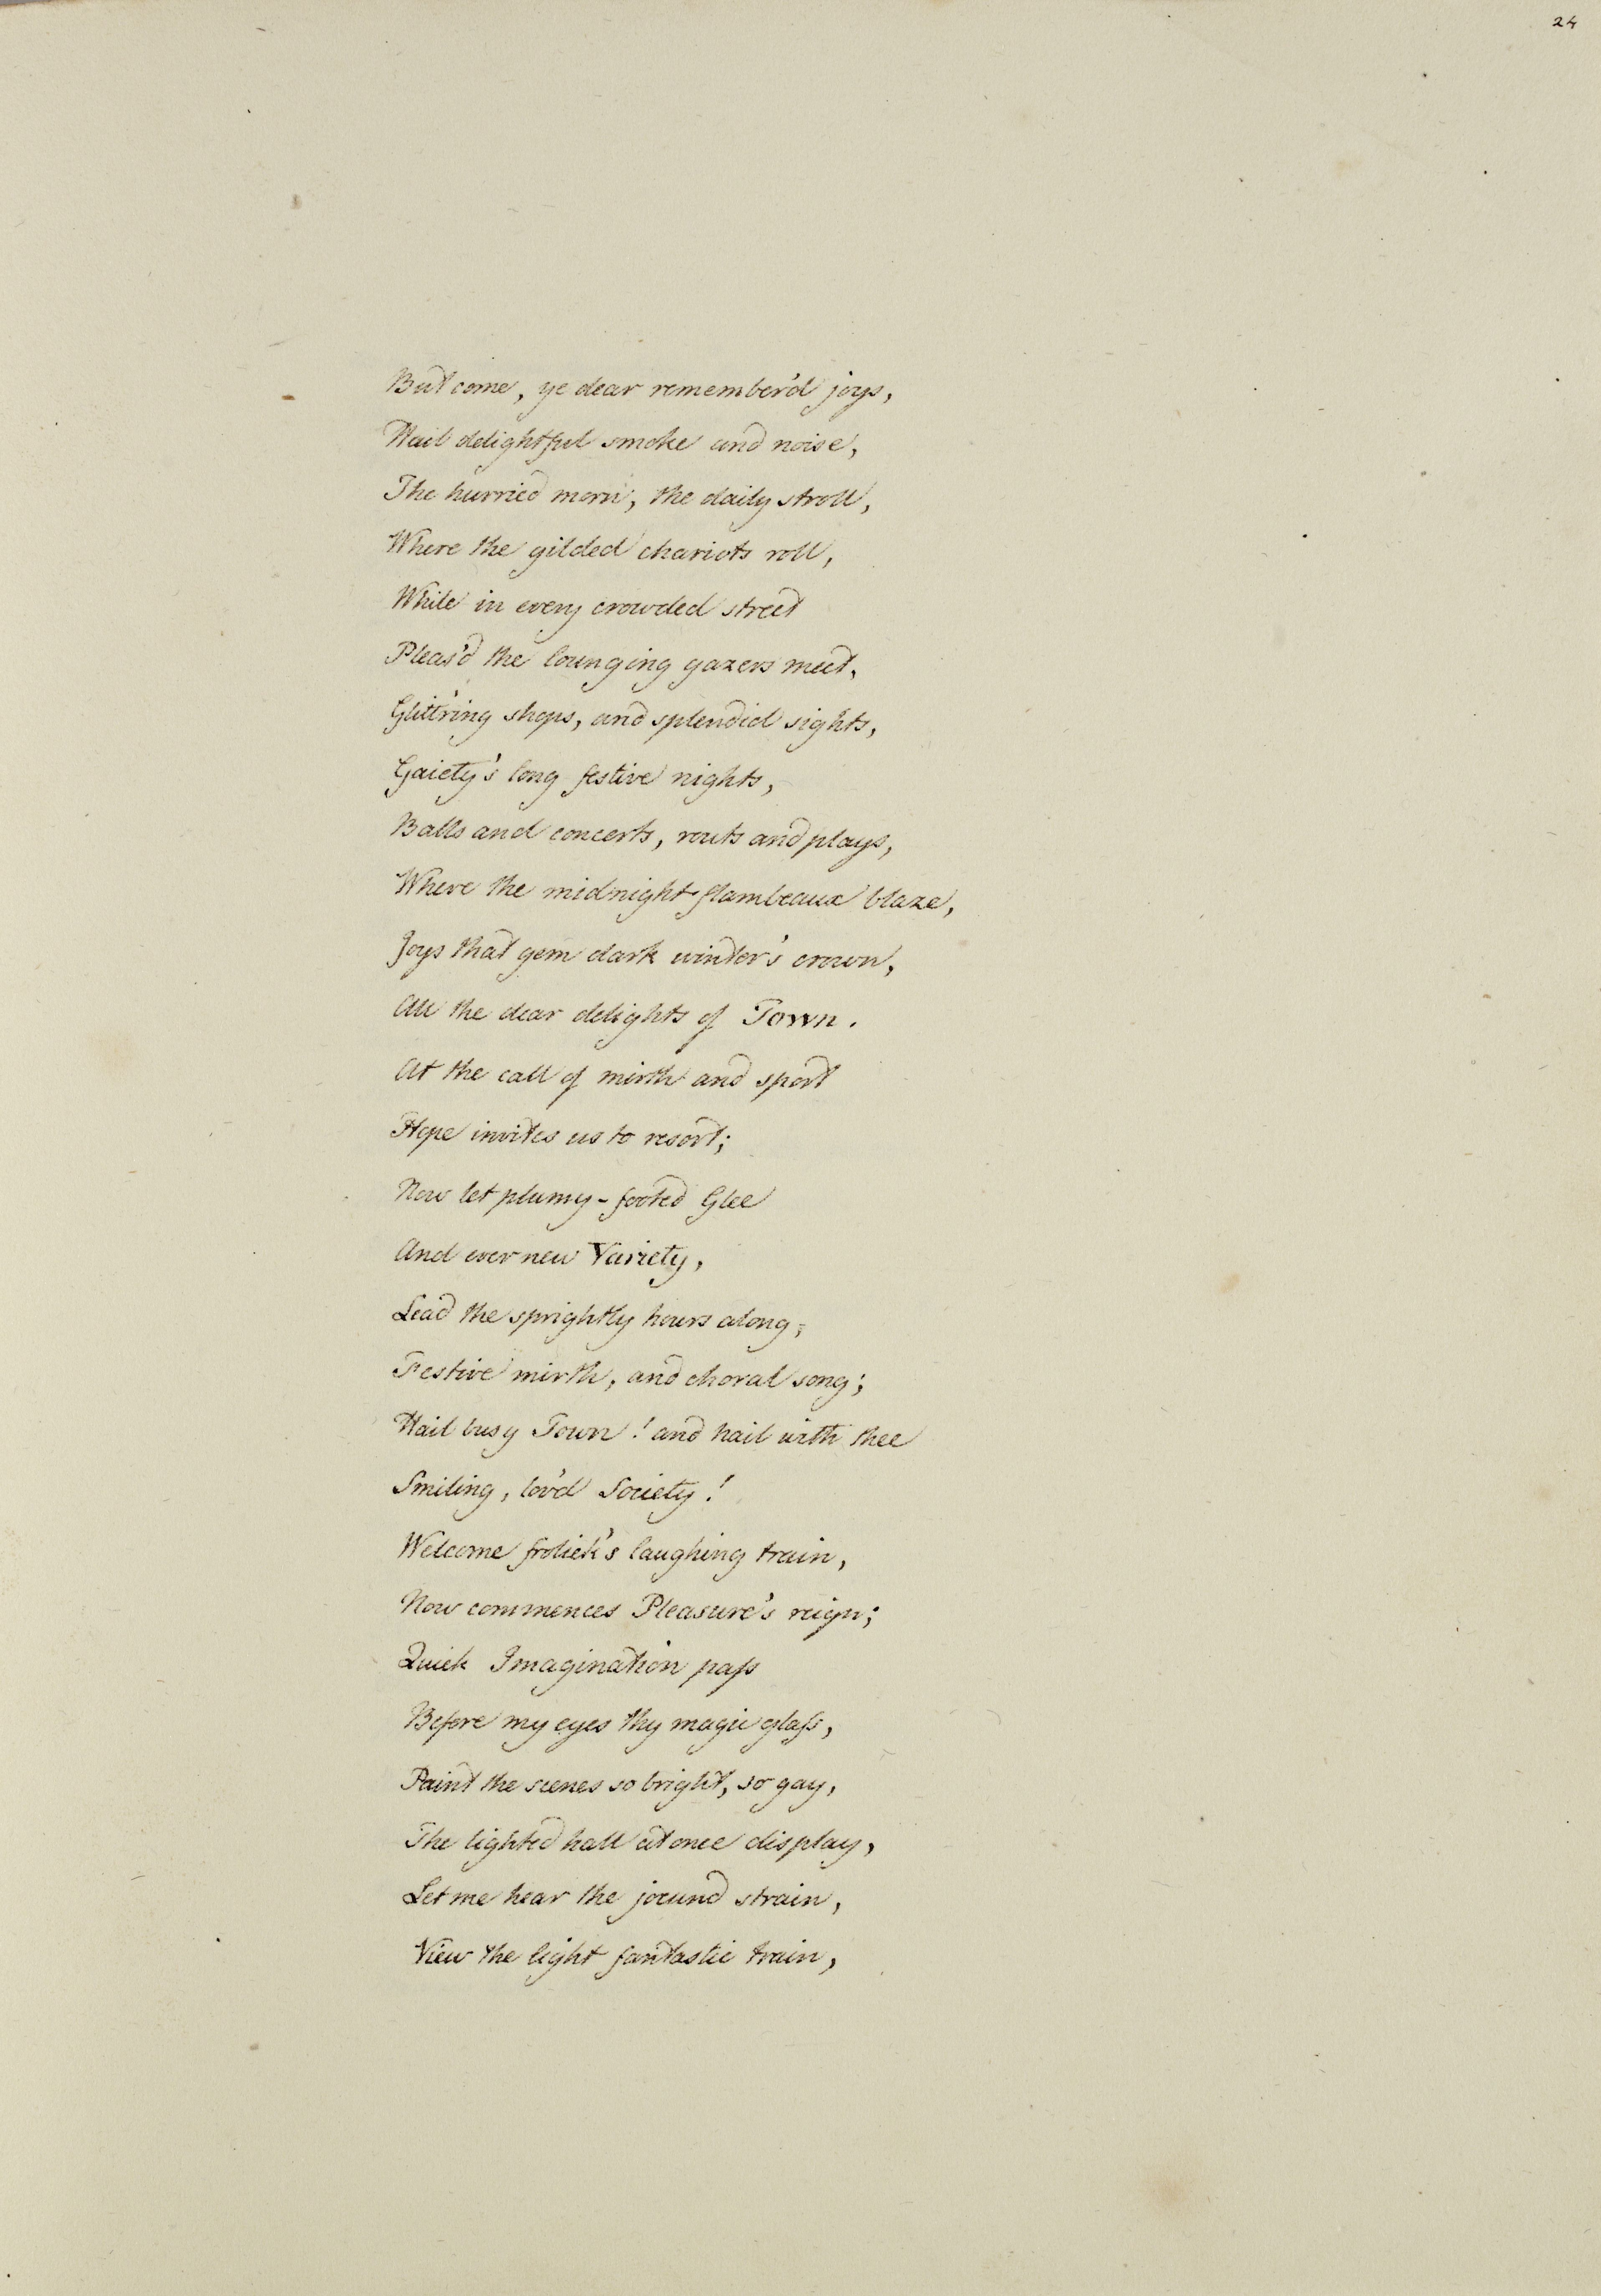 24
But come, ye dear remember'd joys,
Hail delightful smoke and noise,
The hurried morn, the daily stroll,
Where the gilded chariots roll,
While in every crowded street
Pleas'd the lounging gazers meet,
Glitt'ring shops, and splendid sights,
Gaiety's long festive nights,
Balls and concerts, routs and plays,
Where the midnight flambeaux blaze,
Joys that gem dark winter's crown,
All the dear delights of Town.
At the call of mirth and sport
Hope invites us to resort;
Now let plumy-footed Glee
And ever new Variety,
Lead the sprightly hours along,
Festive mirth, and choral song;
Hail busy Town! and hail with thee
Smiling, lov'd Society!
Welcome frolick's laughing train,
Now commences Pleasure's reign;
Quick Imagination paſs
Before my eyes thy magic glaſs,
Paint the scenes so bright, so gay,
The lighted hall at once display,
Let me hear the jocund strain,
View the light fantastic train,